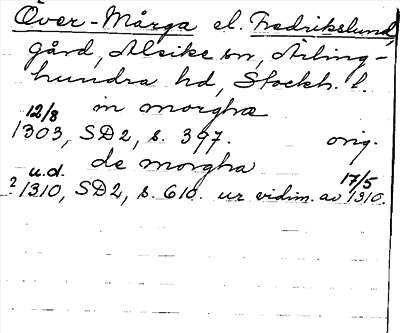 Över-Mårga el. Fredrikslund,
gård, Alsike sn, Ärling-
hundra hd, Stockh. l.
in morgha
12/8 1303, SD2, s. 397. orig.
de morgha
u.d. ? 1310, SD2, s. 610. ur vidim. av 17/5 1310.